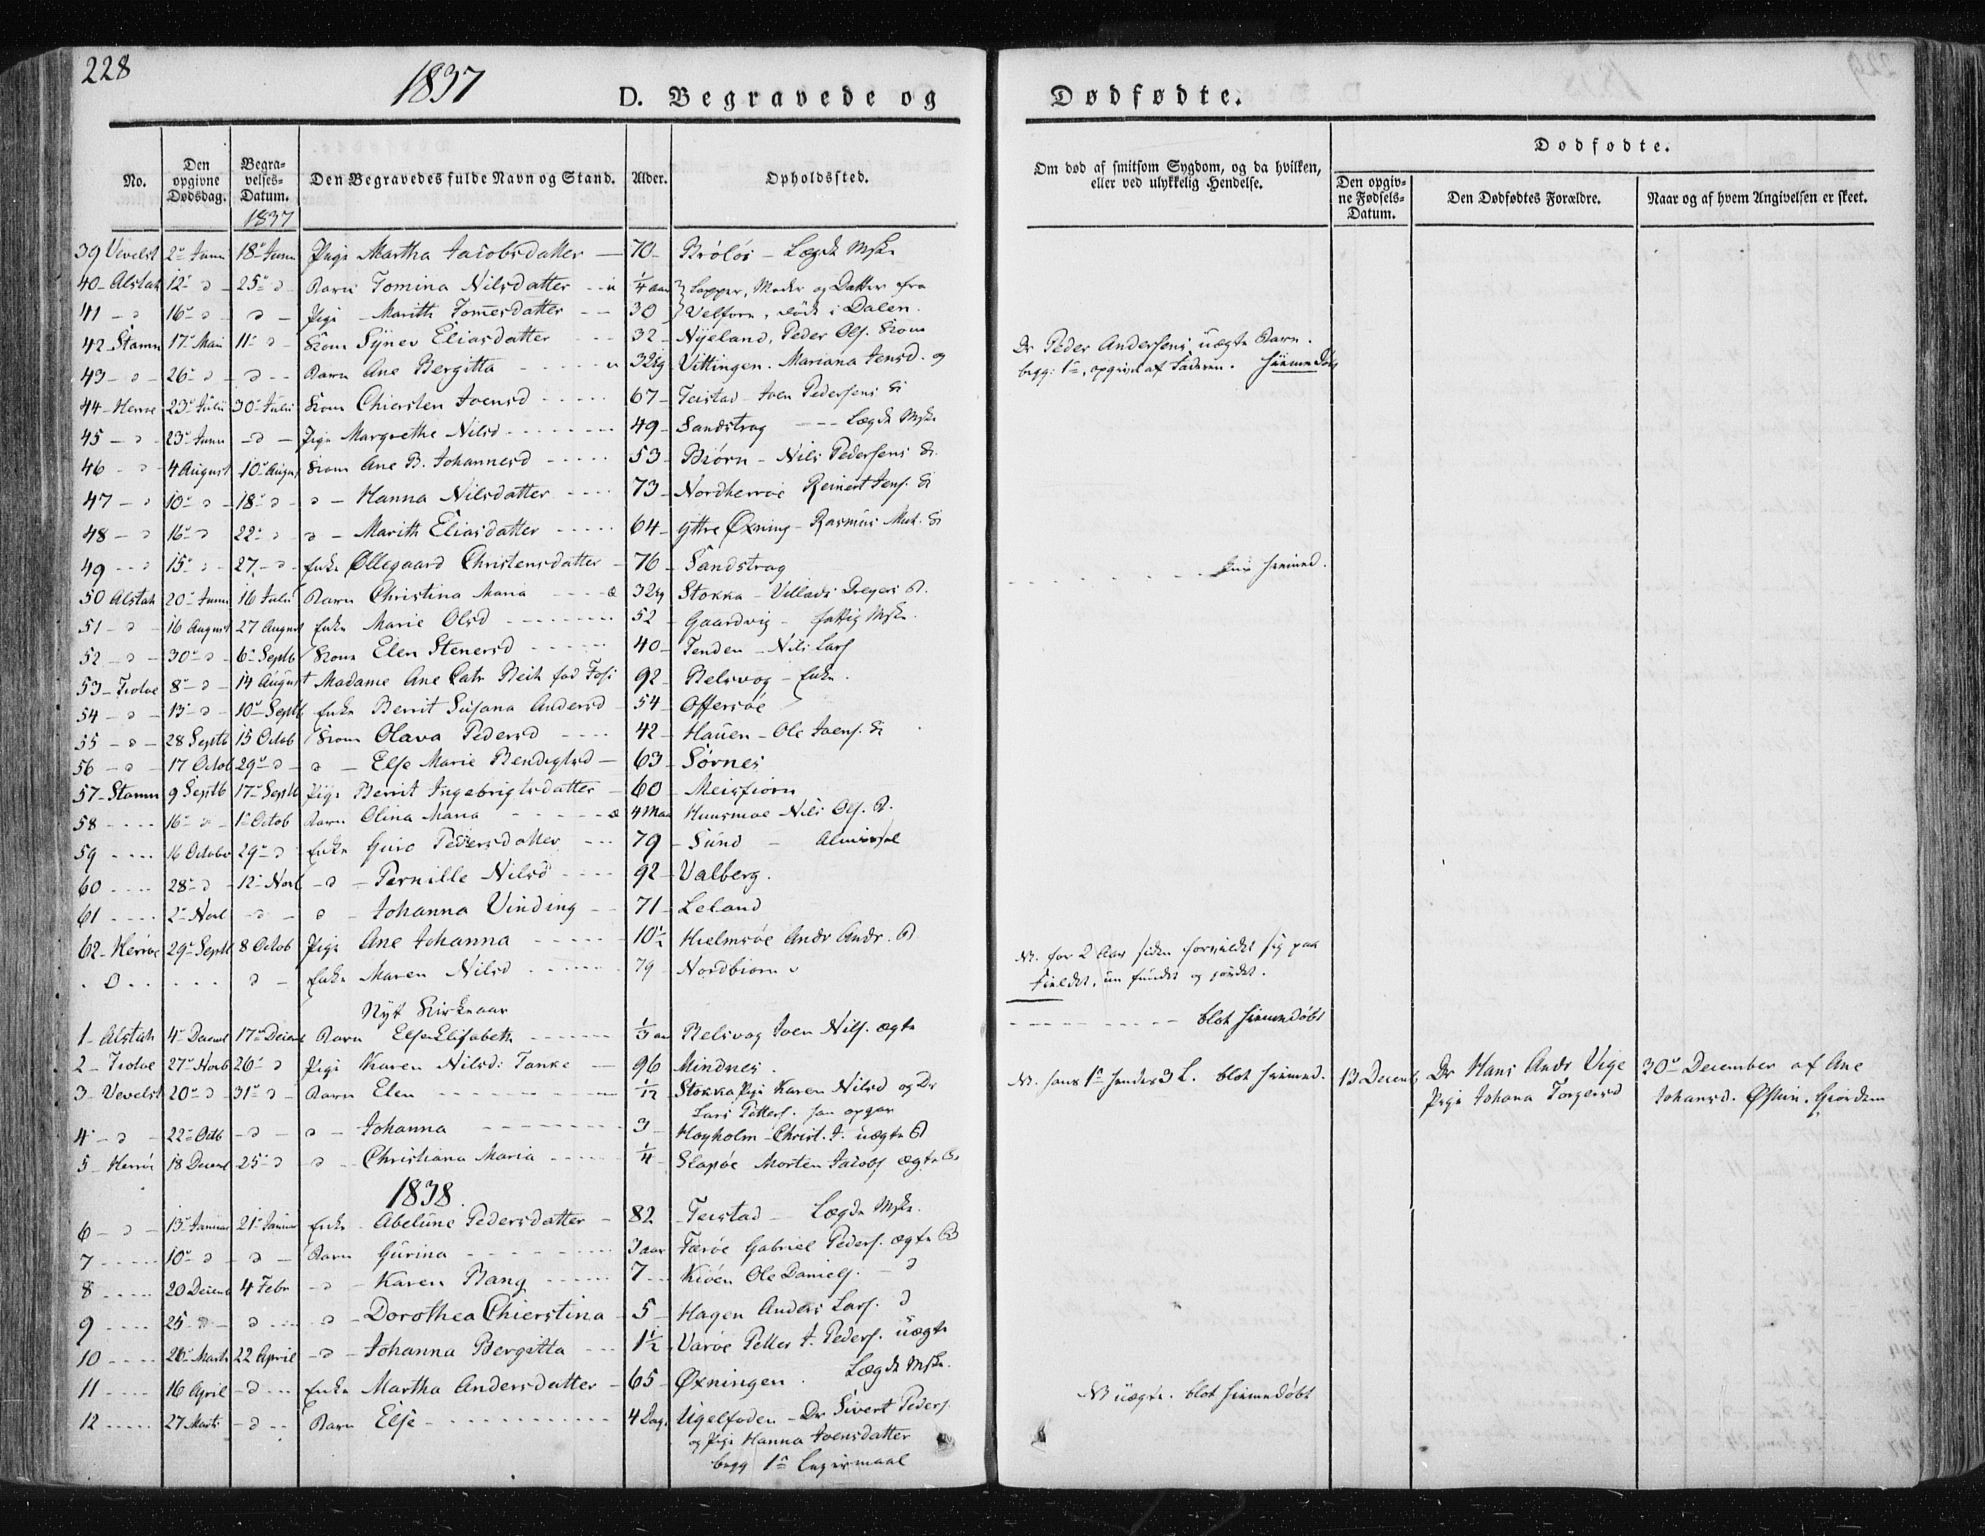 228
1837
D. Begravede og
Dødfødte.
No.
Den opgivne Dødsdag.
Begravelses-Datum.
1837
Den Begravedes fulde Navn og Stand.
Alder.
Opholdssted.
Om død af smitsom Sygdom, og da hvilken, eller ved ulykkelig Hendelse.
Dødfødte.
Den opgivne Fødsels-Datum.
Den Dødfødtes Forældre.
Naar og af hvem Angivelsen er skeet.
39 Vevelst 2 Juni 18 Juni Pige Martha Jacobsdatter 70 Brøløs - Lægds
40 Alstah 12 d 25 d Barn Tomina Nilsdatter u 1/4 aar Lapper, Moder og Datter fra
41 d 16 d d Pige Marith Tomesdatter 30 Velforn, døde i Dalen.
42 Stamn 17 Mai 11 d Kone Synev Eliasdatter 32 Nyeland, Peder Ols. Kone
43 d 26 d d Barn Ane Bergitta u 32 Vittingen. Mariana Jensd. og Dr Peder Andersens uægte Barn.
begg: 1e, opgivn af Faderen. Hiemmedøb
44 Herrø 23 Juli 30 Juli Kone Chiersten Joensd 67 Teistad - Joen Pedersens
45 d 23 Juni d Pige Margrethe Nilsd 49 Sandstrag Lægds
46 d 4 August 10 August Kone Ane B. Johannesd 53 Biørn - Nils Pedersens
47 d 10 d 18 d d Hanna Nilsdatter 73 Nordherrøe Reinert Jens.
48 d 16 d 22 d d Marith Eliasdatter 64 Yttre Øxning - Rasmus
49 d 15 d 27 d Enke Øllegaard Christensdatter 76 Sandstrag
50 Alstah 20 Juni 16 Juli Barn Christina Maria æ 32 Stokka - Villads Dreyers B. hiemmed.
51 d 16 August 27 August Enke Marie Olsd 52 Gaardvig - fattig
52 d 30 d 6 Septb Kone Elen Stenersd 40 Tenden - Nils Lars
53 Tiotøe 8 d 14 August Madame Ane Catr 92 Belsvog - Enke.
54 d 13 d 10 Septb Enke Berrit Susana Andersd 54 Offersøe
55 d 28 Septb 15 Octob Kone Olava Pedersd 42 Hauen - Ole Joens.
56 d 17 Octob 29 d d Else Marie Bendigtsd 63 Sørnes
57 Stamn 9 Septb 17 Septb Pige Berrit Ingebrigtsdatter 60 Meisfiorn
58 16 d 1 Octob Barn Olina Maria æ 4 Maa Huusmoe Nils Ols. B.
59 16 October 29 d Enke Guro Pedersdatter 79 Sund
60 28 d 12 Novb d Pernille Nilsd 92 Valberg.
61 2 Novb d d Johanna Vinding 71 Leland
62 Herrøe 29 Septb 8 Octob Pige Ane Johanna 10 1/2 Hielmsøe Andr Andr. B
0 d Enke Maren Nilsd 79 Nordbiorn
N. for 2 Aar siden forvildet sig paa
Fieldet, nu fundet og jordet.
Nyt Kirkeaar
1 Alstah 4 Decemb 17 Decemb Barn Else Elisabeth 1/3 aar Belsvog Joen Nils. ægte blot hiemmedøbt
2 Tiotøe 27 Novb 26 d Pige Karen Nilsd: Tanke 96 Mindnes.
3 Vevelst 20 d 31 d Barn Elen 1/12 Stokka Pige Karen Nilsd og Dr
Lars Petters.
N. hans 1e hendes 3 L. blot hiemmed.
13 Decemb Dr Hans Andr Vige
Pige Johana Torgersd
30 December af Ane
Johansd. Østvin. Giordem
4 d 22 Octb d d Johanna 3 Høyholm - Christ. J. uægte B
5 Herrøe 18 Decemb 25 d d Christiana Maria 1/4 Slapøe Morten Jacobs ægte B
1838
6 d 13 Januar 21 Januar Enke Abelune Pedersdatter 82 Teistad Lægds
7 10 d d Barn Gurina 3 aar Færøe Gabriel Peders. ægte B
8 20 Decemb 4 Febr d Karen Bang 7 Kiøen Ole Daniels. d
9 25 d d d Dorothea Chierstina 5 Hagen Anders Lars. d
10 26 Marts 22 April d Johanna Bergitta 1 1/2 Varøe Petter J. Peders. uægte
11 16 April d Enke Martha Andersdatter 65 Øxningen. Lægds
12 27 Marts d Barn Else 4 Dage Ugelfoden - Dr Sivert Peders.
og Pige Hanna Joensdatter
begg 1e Leiermaal
NB uægte. blot hiemmedøbt